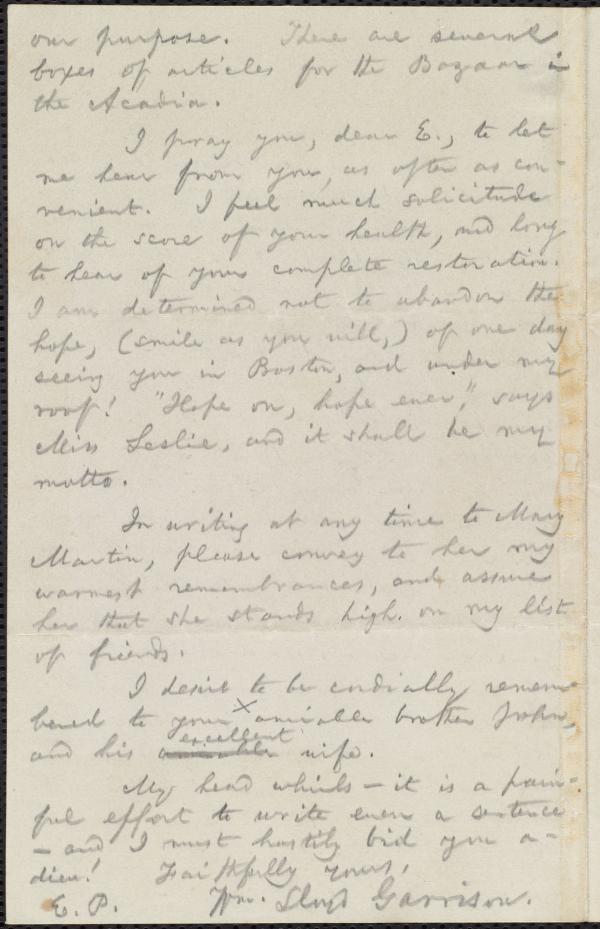 our purpose. There are several
boxes of articles for the Bazaar in
the Acadia.
I pray you, dear E., to let
me hear from you, as often as con-
venient. I feel much solicitude
on the score of your health, and long
to hear of your complete restoration.
I am determined not to abandon the
hope, (smile as you will,) of one day
seeing you in Boston, and under my
roof! "Hope on, hope ever," says
Miss Leslie, and it shall be my
motto.
In writing at any time to Mary
Martin, please convey to her my
warmest remembrances, and assure
her that she stands high on my list
of friends.
I desire to be cordially remem-
bered to your x amiable brother John,
excellent
and his amiable wife.
My head whirls — it is a pain-
ful effort to write even a sentence
— and I must hastily bid you a-
dieu! Faithfully yours,
E. P. Wm. Lloyd Garrison.